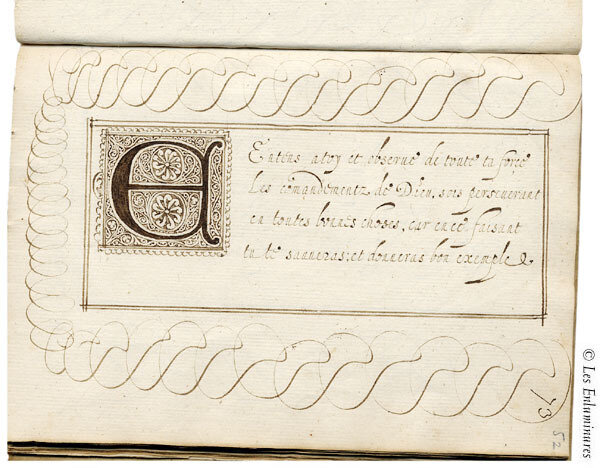 E
Entens a toy et obserue de toute ta force
Les comandementz de Dieu, sois perseuerant
en toutes bonnes choses, car en ce faisant
tu te sauueras: et donneras bon exemple
52
© Les Enluminures